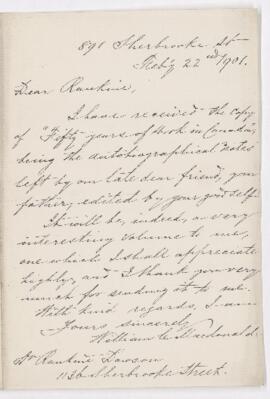 891 Sherbrooke St
Feb'y 22nd 1901.
Dear Rankine,
I have received the copy
of "Fifty years of Work in Canada",
being the autobiographical notes
left by our late dear friend, your
father, edited by your good self.
It will be, indeed, a very
interesting volume to me,
one which I shall appreciate
highly, and I thank you very
much for sending it to me.
With kind regards, I am
Yours sincerely
William C. Macdonald.
Dr Rankine Dawson
1136 Sherbrooke Street.